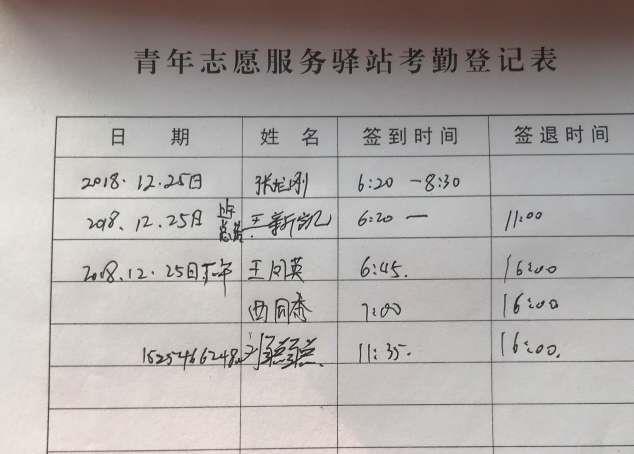 青年志愿服务驿站考勤登记表
日 期 姓 名 签到时间 签退时间
2018.12.25日 张龙刚 6:20 -8:30
2018.12.25日 上午 王新凯 6:20 — 11:00
2018.12.25日下午 王同英 6:45. 16:00
7:00 16:00
11:35. 16:00.